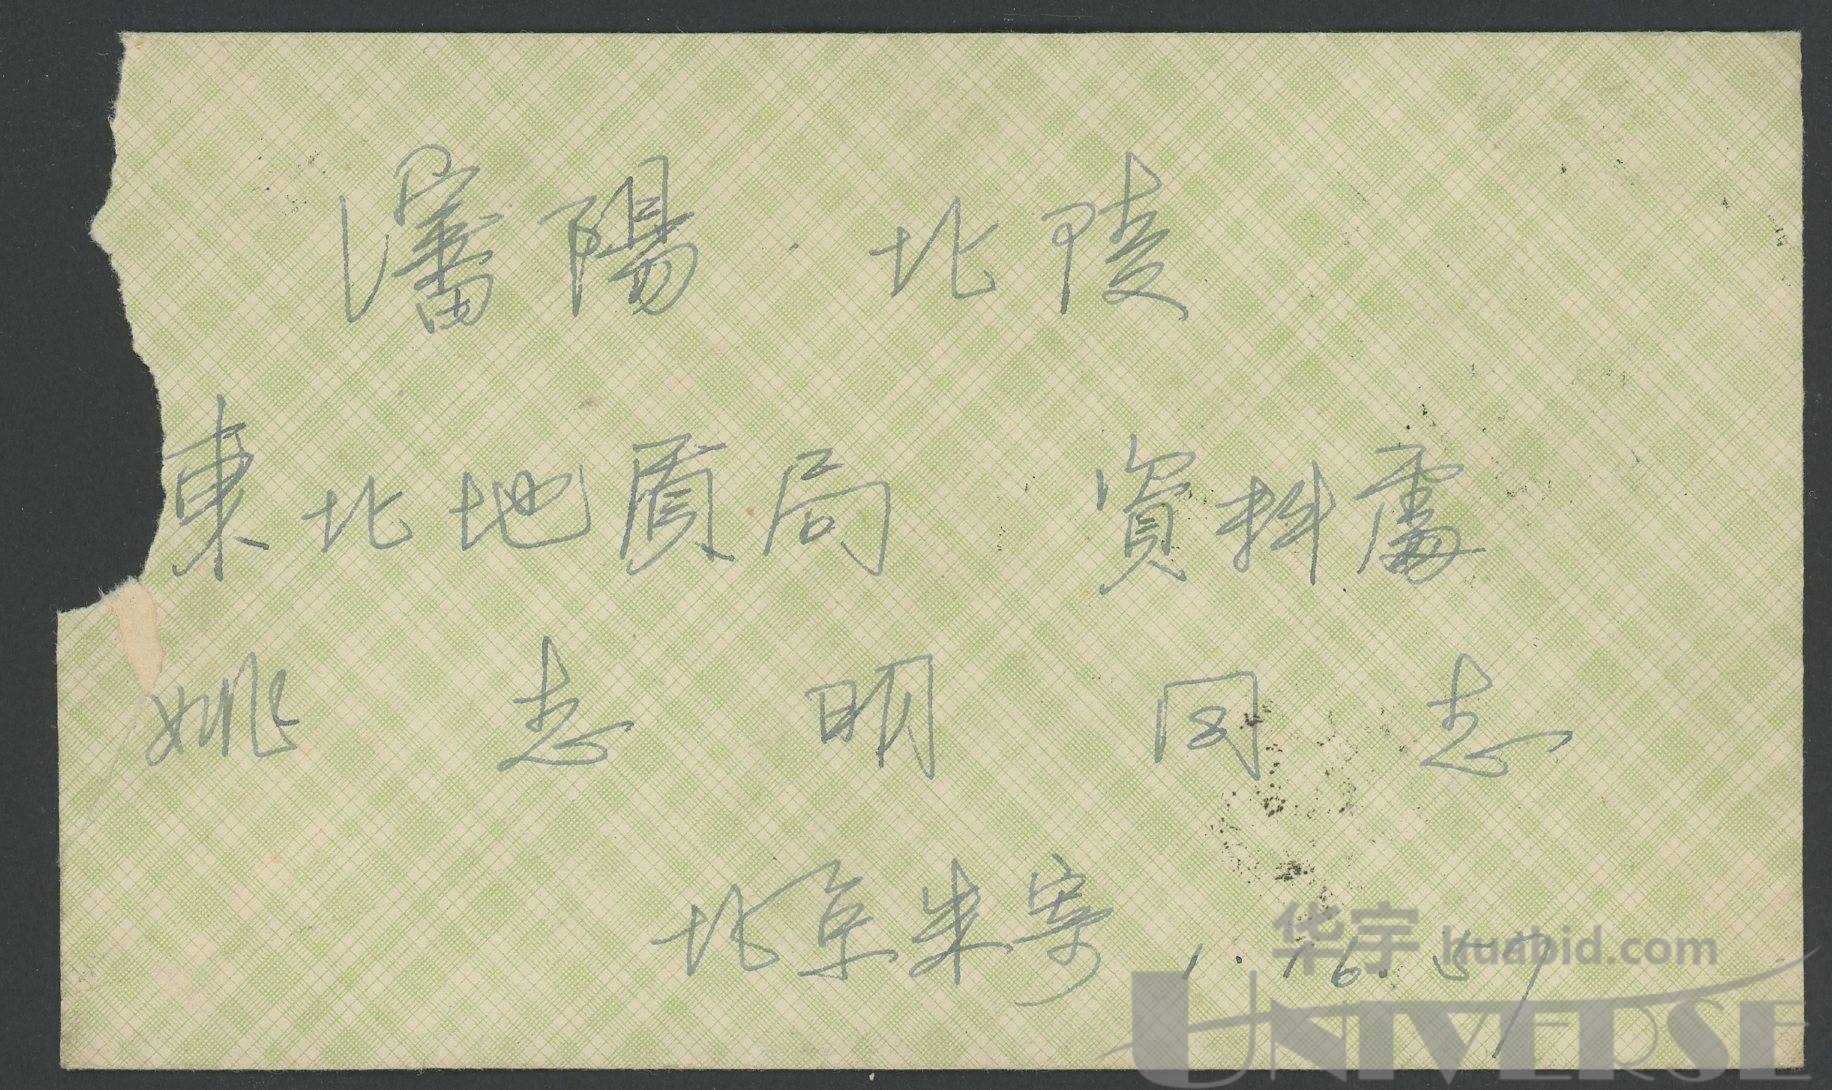 瀋陽 · 北陵
東北地質局 資料處
姚志明同志
北京朱寄 1. 16. 57
华宇 huabid.com
UNIVERSE